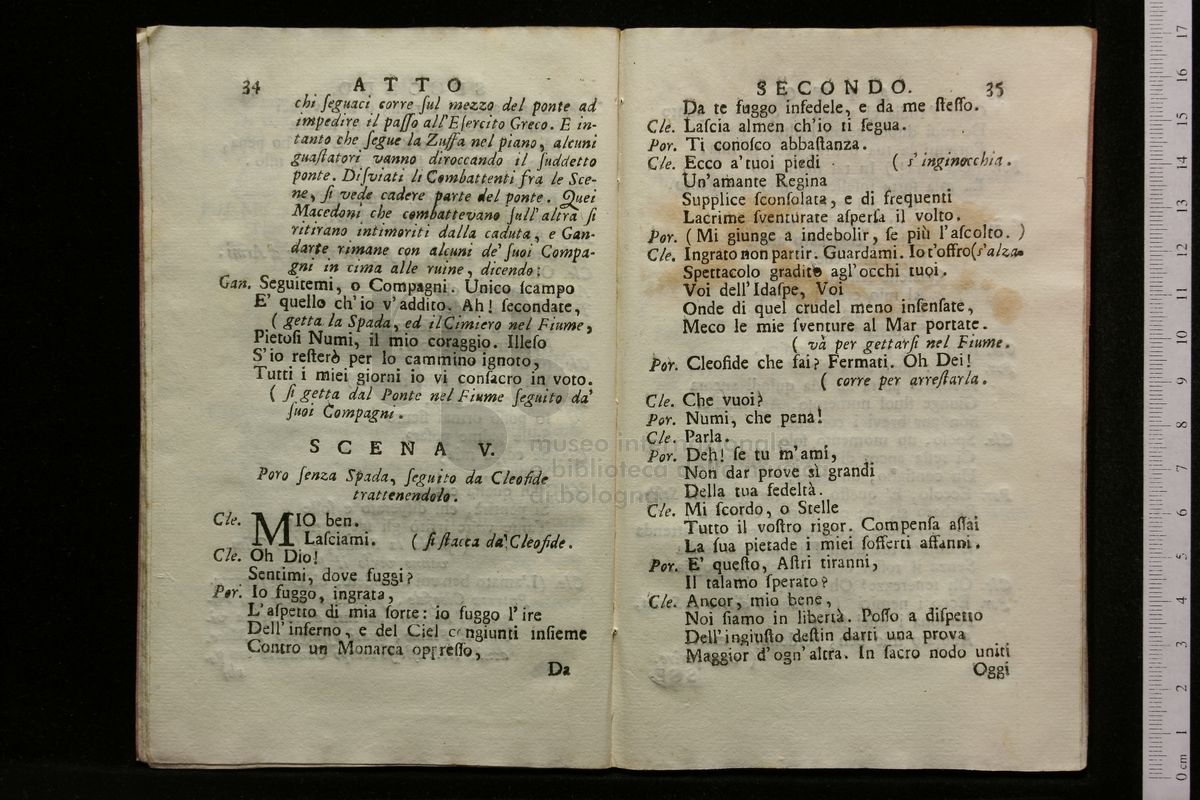 34 ATTO
chi ſeguaci corre ſul mezzo del ponte ad
impedire il paſſo all'Eſercito Greco. E in-
tanto che ſegue la Zuffa nel piano, alcuni
guaſtatori vanno diroccando il ſuddetto
ponte. Diſviati li Combattenti fra le Sce-
ne, ſi vede cadere parte del ponte. Quei
Macedoni che combattevano ſull'altra ſi
ritirano intimoriti dalla caduta, e Gan-
darte rimane con alcuni de' ſuoi Compa-
gni in cima alle ruine, dicendo:
Gan. Seguitemi, o Compagni. Unico ſcampo
E' quello ch'io v'addito. Ah! ſecondate,
( getta la Spada, ed il Cimiero nel Fiume,
Pietoſi Numi, il mio coraggio. Illeſo
S'io reſterò per lo cammino ignoto,
Tutti i miei giorni io vi conſacro in voto.
( ſi getta dal Ponte nel Fiume ſeguito da'
ſuoi Compagni.
SCENA V.
Poro ſenza Spada, ſeguito da Cleofide
trattenendolo.
Cle. MIO ben.
Laſciami. ( ſi ſtacca da' Cleofide.
Cle. Oh Dio!
Sentimi, dove fuggi?
Por. Io fuggo, ingrata,
L'aſpetto di mia ſorte: io fuggo l'ire
Dell'inferno, e del Ciel congiunti inſieme
Contro un Monarca oppreſſo,
Da
SECONDO. 35
Da te fuggo infedele, e da me ſteſſo.
Cle. Laſcia almen ch'io ti ſegua.
Por. Ti conoſco abbaſtanza.
Cle. Ecco a'tuoi piedi ( s'inginocchia.
Un'amante Regina
Supplice ſconſolata, e di frequenti
Lacrime ſventurate aſperſa il volto.
Por. ( Mi giunge a indebolir, ſe più l'aſcolto. )
Cle. Ingrato non partir. Guardami. Io t'offro(s'alza.
Spettacolo gradito agl'occhi tuoi.
Voi dell'Idaſpe, Voi
Onde di quel crudel meno inſenſate,
Meco le mie ſventure al Mar portate.
( và per gettarſi nel Fiume.
Por. Cleofide che fai? Fermati. Oh Dei!
( corre per arreſtarla.
Cle. Che vuoi?
Por. Numi, che pena!
Cle. Parla.
Por. Deh! ſe tu m'ami,
Non dar prove sì grandi
Della tua fedeltà.
Cle. Mi ſcordo, o Stelle
Tutto il voſtro rigor. Compenſa aſſai
La ſua pietade i miei ſofferti affanni.
Por. E' queſto, Aſtri tiranni,
Il talamo ſperato?
Cle. Ancor, mio bene,
Noi ſiamo in libertà. Poſſo a diſpetto
Dell'ingiuſto deſtin darti una prova
Maggior d'ogn'altra. In ſacro nodo uniti
Oggi
museo internazionale
biblioteca
di bologna
0 cm 1 2 3 4 5 6 7 8 9 10 11 12 13 14 15 16 17